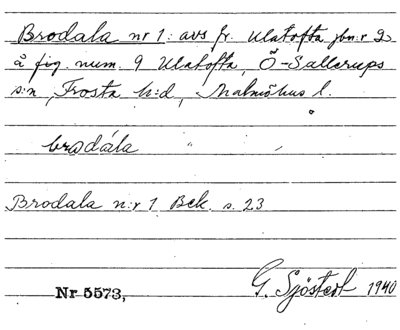 Brodala nr 1: avs fr. Ulatofta jbn:r 2
å fig. num. 9 Ulatofta, Ö-Sallerups
s:n, Frosta h:d, Malmöhus l.
brodála
Brodala n:r 1 Bek. s. 23
Nr 5573, G. Sjöstedt 1940